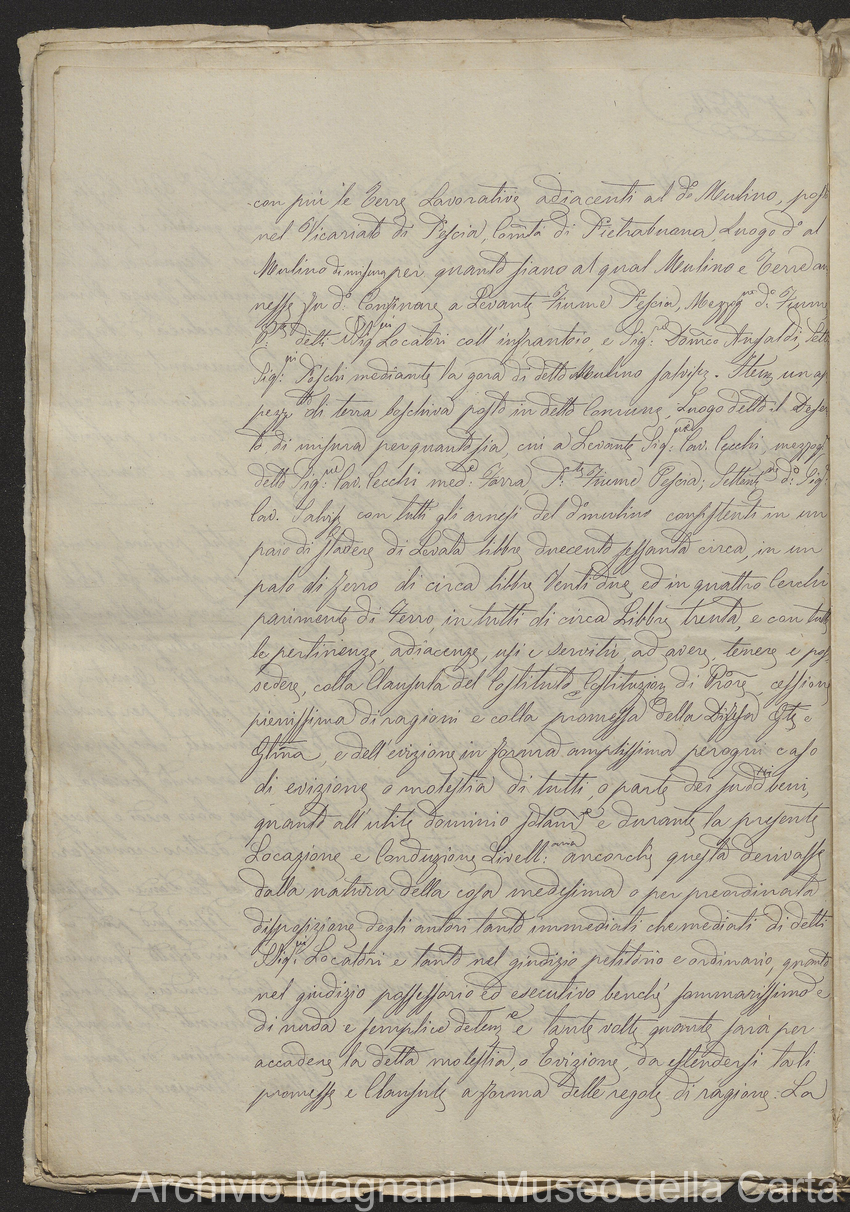 con più le Terre Lavorative adiacenti al do Mulino, poste
nel Vicariato di Pescia, Comtà di Pietrabuona, Luogo do al
Mulino di misura per quanto siano al qual Mulino e Terre an
nesse fu do: Confinare a Levante Fiume Pescia, Mezzog do: Fiume
detti Sigri Locatori coll'infrantoio, e Sigre: Domco Ansaldi, Sette
Sigri: Poschi mediante la gora di detto Mulino salvis. Item, un ap
pezzto di terra boschiva posto in detto Comune, Luogo detto il Deser
to di misura per quanto sia, cui a Levante Sigre: Cav. Cecchi, mezzog
detto Sigre: Cav. Cecchi mede: Forra, Pte Fiume Pescia, Settene do: Sigre
Cav. Salvis, con tutti gli arnesi del do mulino consistenti in un
paro di Stadere di Levata libbre duecento sessanta circa, in un
palo di ferro di circa libbre Ventidue, ed in quattro Cerchi
parimente di Ferro in tutti di circa Libbre trenta, e con tutte
le pertinenze, adiacenze, usi e servitù ad avere, tenere e pos
sedere, colla Clausula del Costituto e Costituzion di Prore, cessione
pienissima di ragioni e colla promessa della Difesa Gte e
Gltma, e dell'evizione in forma amplissima per ogni caso
di evizione, o molestia di tutti, o parte dei suddti beni,
quanto all'utile dominio soltante e durante la presente
Locazione e Conduzione Livell:aria ancorchè questa derivasse
dalla natura della cosa medesima o per preordinata
disposizione degli autori tanto immediati che mediati di detti
Sigri: Locatori e tanto nel giudizio petitorio e ordinario, quanto
nel giudizio possessorio ed esecutivo benchè sommarissimo e
di nuda e semplice detenzne e tante volte quante sarà per
accadere la detta molestia, o Evizione, da estendersi tali
promesse e Clausule a forma delle regole di ragione: La
Archivio Magnani - Museo della Carta